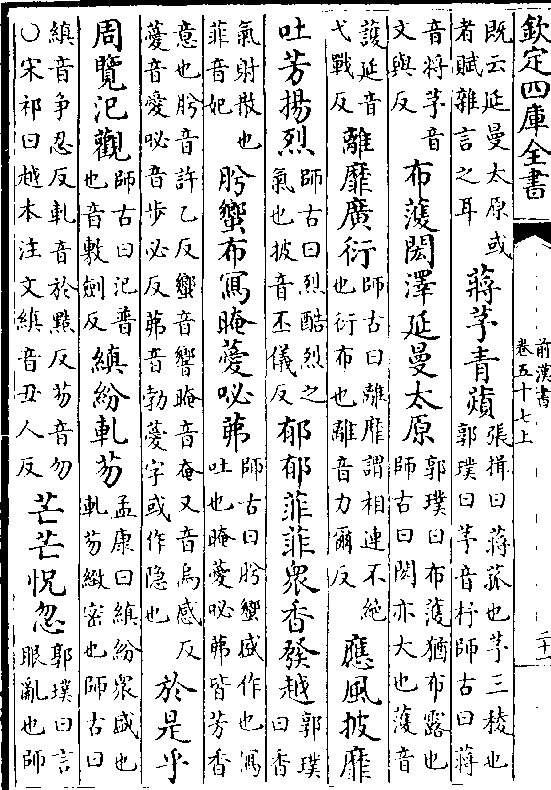 欽定四庫全書
前漢書
卷五十七上
二十一
既云延曼太原或
者賦雜言之耳
蔣芧青薠
張揖曰蔣菰也芧三稜也
郭璞曰芧音杼師古曰蔣
音將芧音
文與反
布濩閎澤延曼太原
郭璞曰布濩猶布露也
師古曰閎亦大也濩音
護延音
弋戰反
離靡廣衍
師古曰離靡謂相連不絶
也衍布也離音力爾反
應風披靡
吐芳揚烈
師古曰烈酷烈之
氣也披音丕儀反
郁郁菲菲衆香發越
郭璞
曰香
氣射散也
菲音妃
肸蠁布寫晻薆咇茀
師古曰肸蠁盛作也寫
吐也晻薆咇茀皆芳香
意也肸音許乙反蠁音響晻音奄又音烏感反
薆音愛咇音步必反茀音勃薆字或作隐也
於是乎
周覽汜觀
師古曰汜普
也音敷劍反
縝紛軋芴
孟康曰縝紛衆盛也
軋芴緻密也師古曰
縝音争忍反軋音於黠反芴音勿
○宋祁曰越本注文縝音丑人反
芒芒怳忽
郭璞曰言
眼亂也師